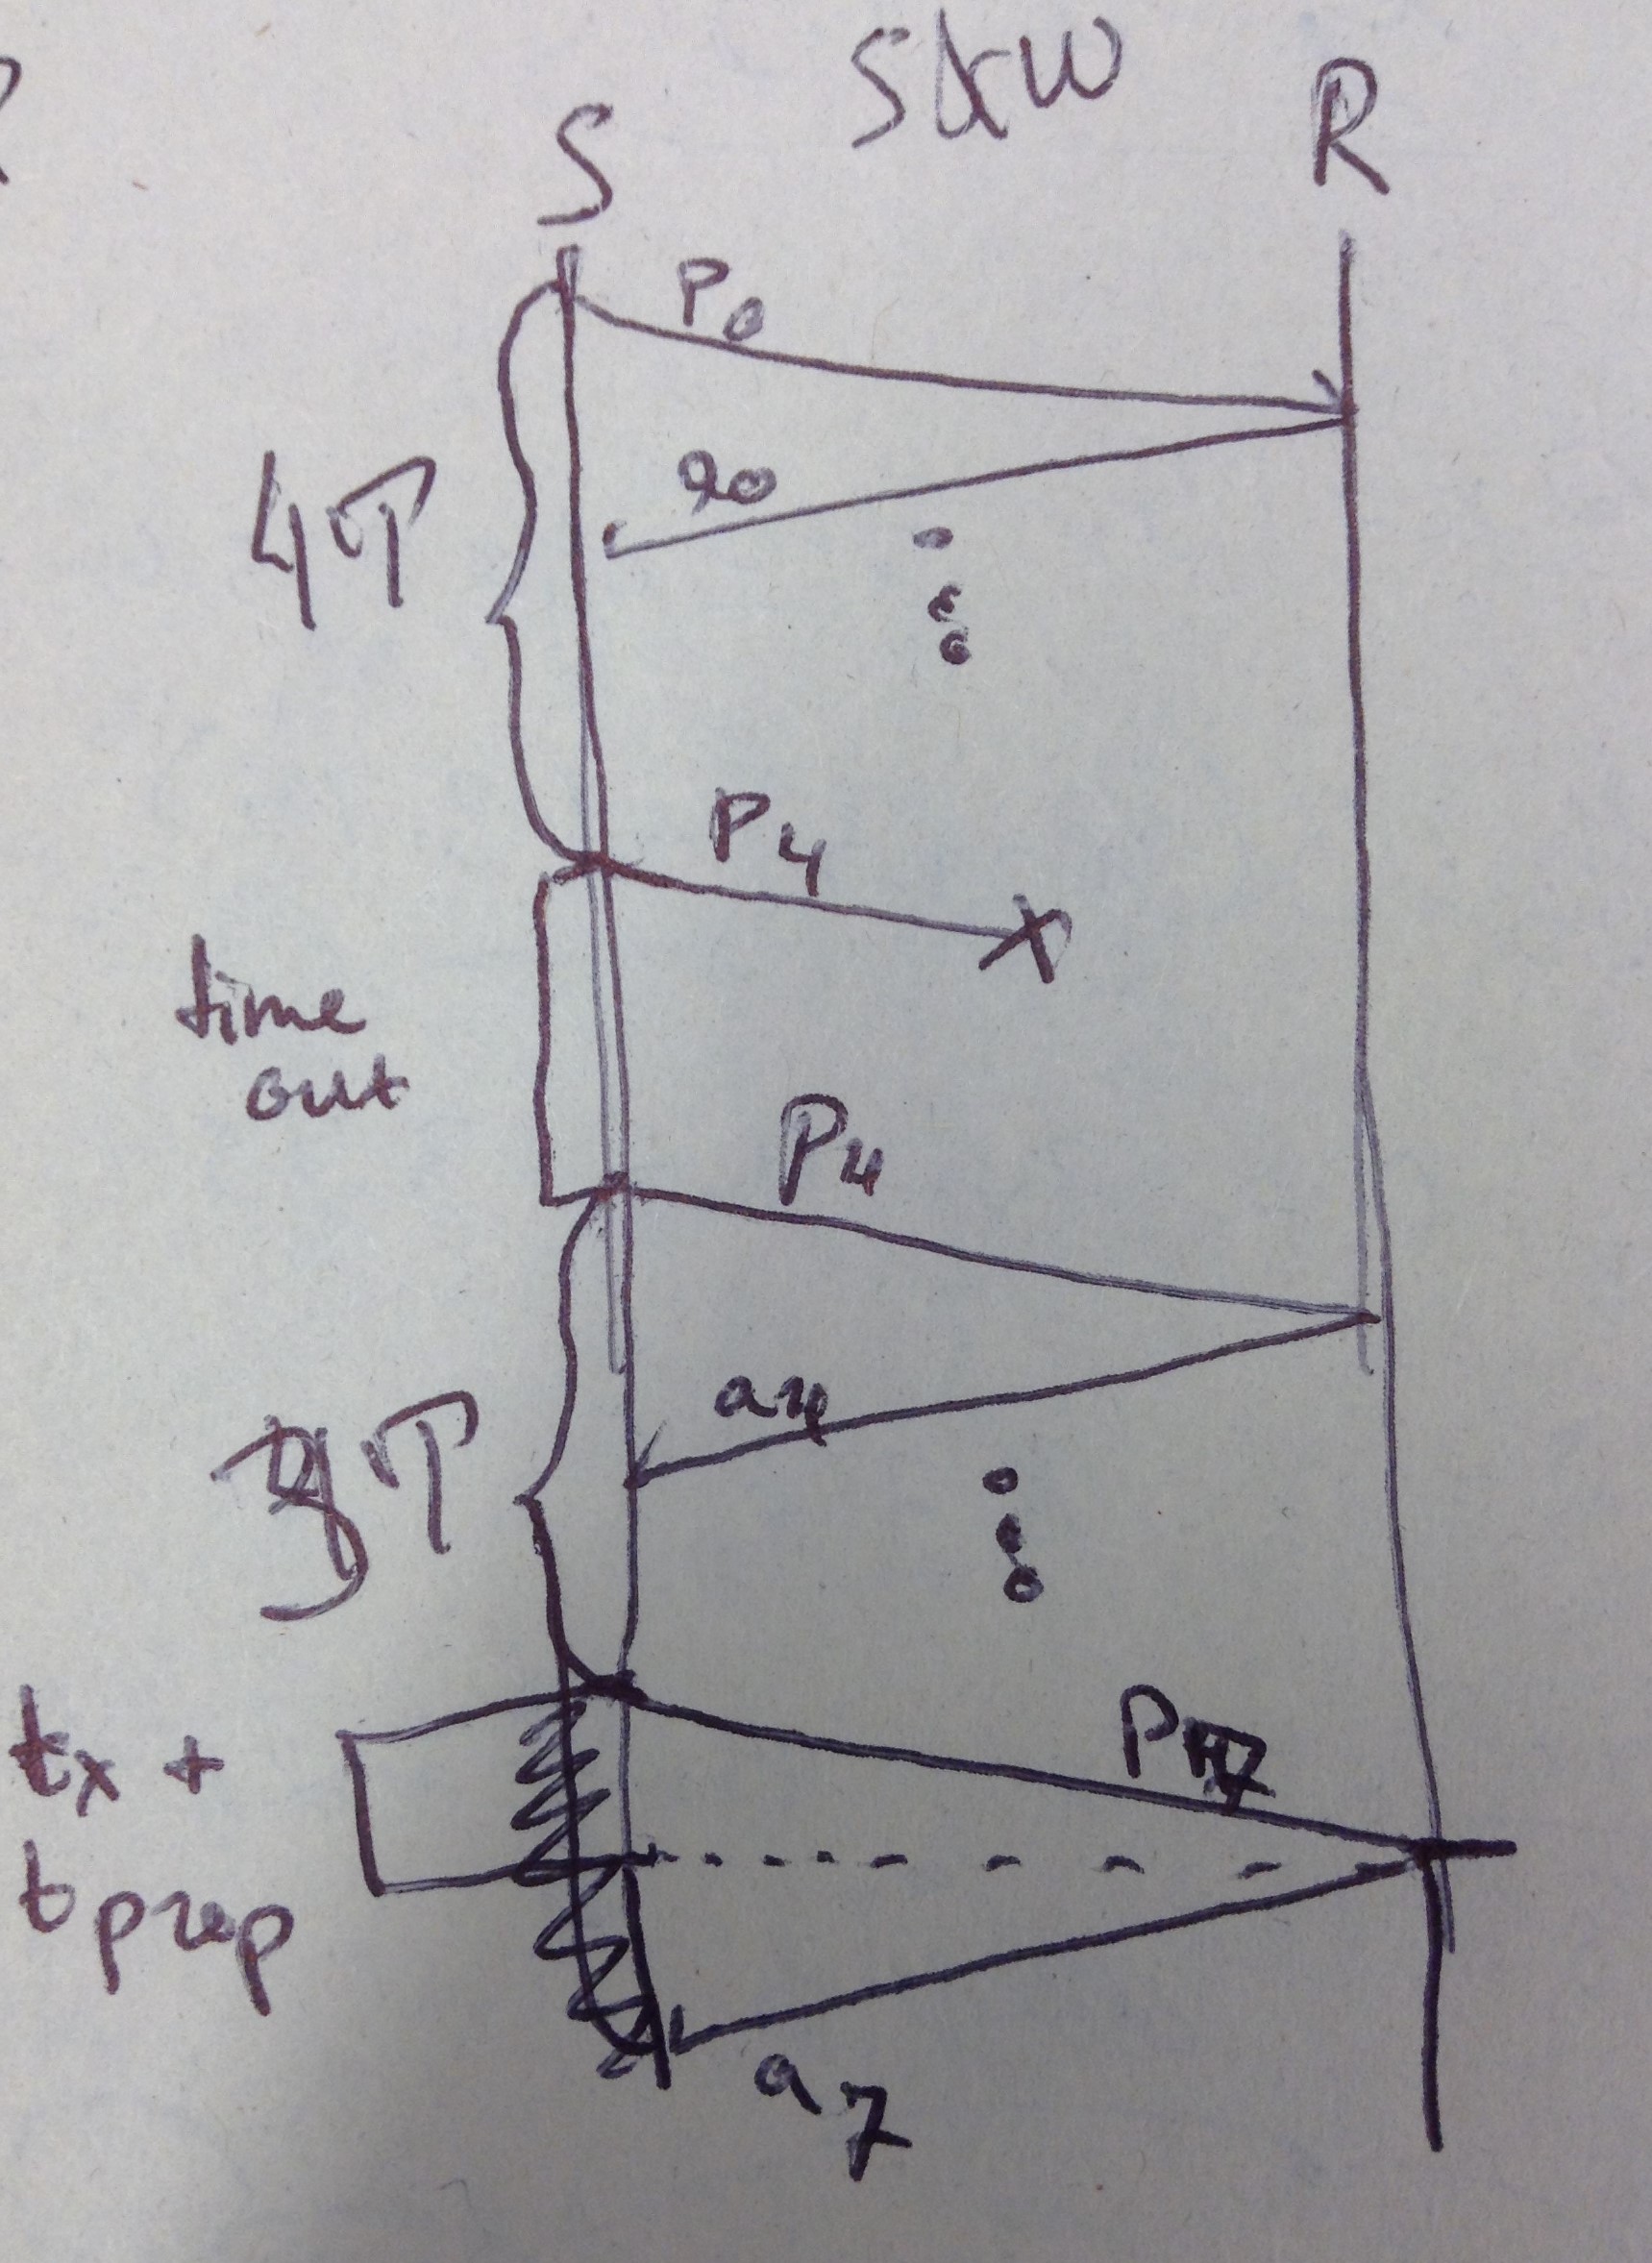 S&W
S R
P0
a0
4T
P4
time
out
P4
a4
3T
P7
tx +
tprop
a7